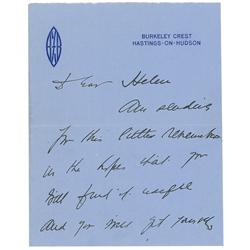 BURKELEY CREST
HASTINGS-ON-HUDSON
Dear Helen
Am sending
for this little remembran
in the hopes that you
will find it useful
And you will get